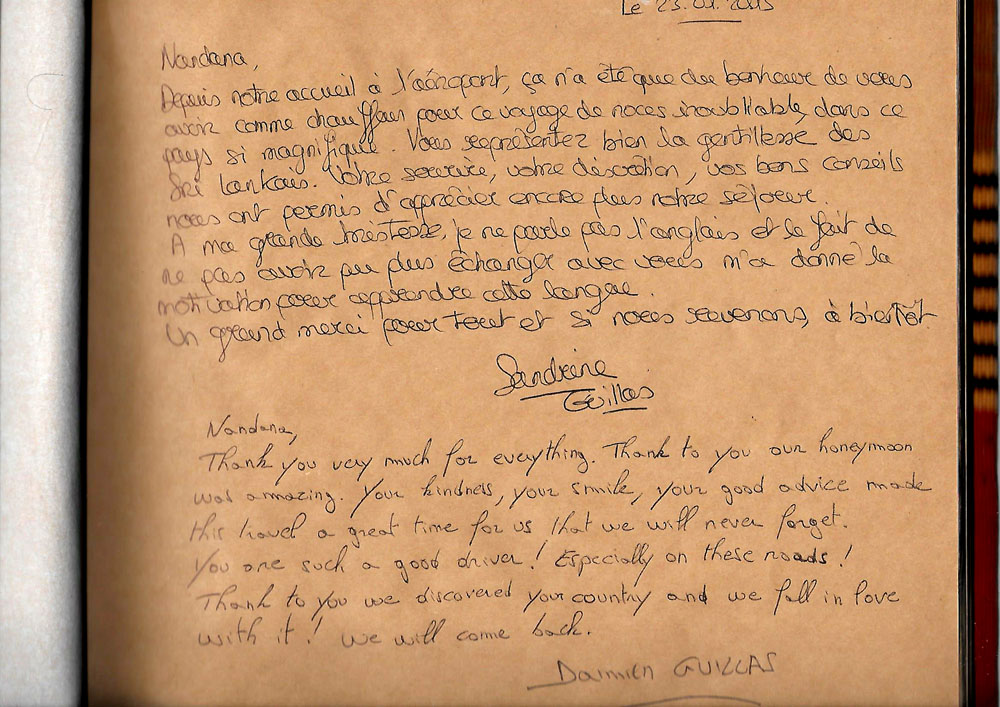 Le 23.01.2015
Nandana,
Depuis notre accueil à l'aéroport, ça n'a été que du bonheur de vous
avoir comme chauffeur pour ce voyage de noces inoubliable, dans ce
pays si magnifique. Vous représentez bien la gentillesse des
Sri lankais. Votre sourire, votre discrétion, vos bons conseils
nous ont permis d'apprécier encore plus notre séjour.
A ma grande tristesse, je ne parle pas l'anglais et le fait de
ne pas avoir pu plus échanger avec vous m'a donné la
motivation pour apprendre cette langue.
Un grand merci pour tout et si nous revenons, à bientôt
Sandrine
Guillas
Nandana,
Thank you very much for everything. Thank to you our honeymoon
was amazing. Your kindness, your smile, your good advice made
this travel a great time for us that we will never forget.
You are such a good driver! Especially on these roads!
Thank to you we discovered your country and we fall in love
with it! We will come back.
Damien GUILLAS